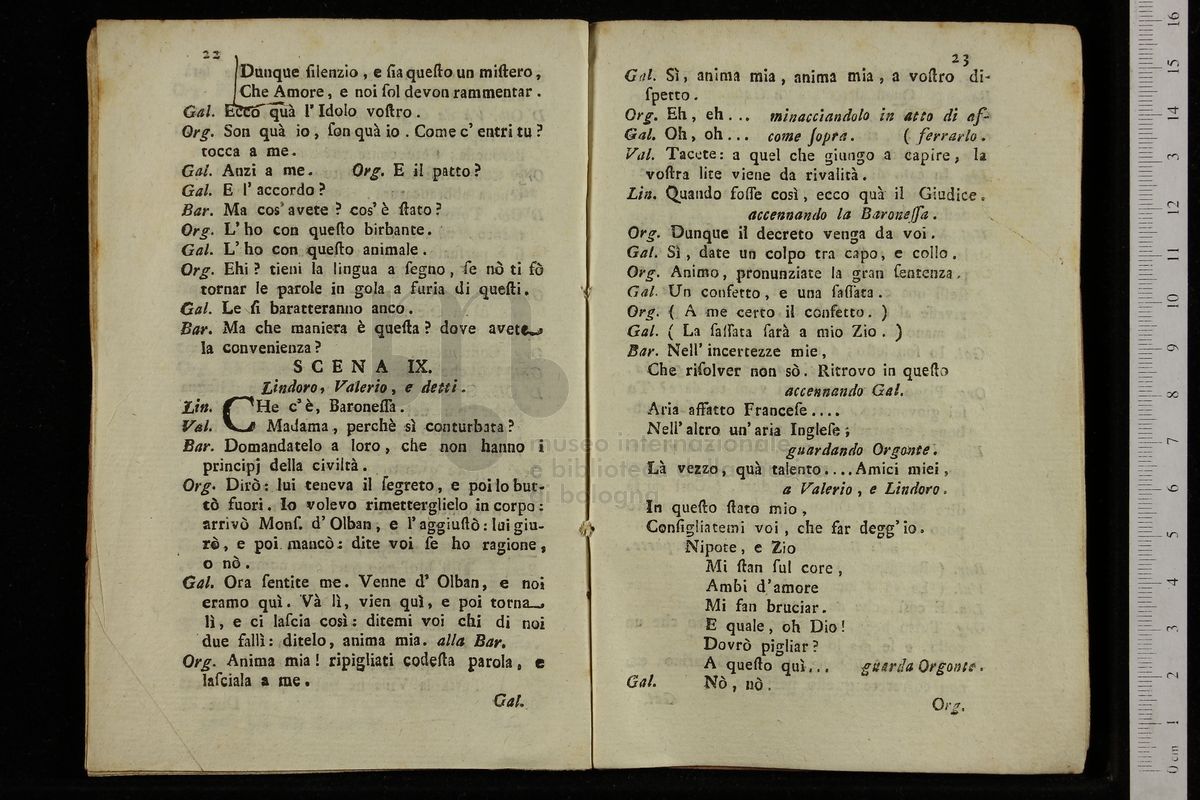 22
Dunque ſilenzio, e ſia queſto un miſtero,
Che Amore, e noi ſol devon rammentar.
Gal. Ecco quà l'Idolo voſtro.
Org. Son quà io, ſon quà io. Come c'entri tu?
tocca a me.
Gal. Anzi a me. Org. E il patto?
Gal. E l'accordo?
Bar. Ma cos'avete? cos'è ſtato?
Org. L'ho con queſto birbante.
Gal. L'ho con queſto animale.
Org. Ehi? tieni la lingua a ſegno, ſe nò ti fò
tornar le parole in gola a furia di queſti.
Gal. Le ſi baratteranno anco.
Bar. Ma che maniera è queſta? dove avete
la convenienza?
SCENA IX.
Lindoro, Valerio, e detti.
Lin. CHe c'è, Baroneſſa.
Val. Madama, perchè sì conturbata?
Bar. Domandatelo a loro, che non hanno i
principj della civiltà.
Org. Dirò: lui teneva il ſegreto, e poi lo but-
tò fuori. Io volevo rimetterglielo in corpo:
arrivò Monſ. d'Olban, e l'aggiuſtò: lui giu-
rò, e poi mancò: dite voi ſe ho ragione,
o nò.
Gal. Ora ſentite me. Venne d'Olban, e noi
eramo quì. Và lì, vien quì, e poi torna
lì, e ci laſcia così: ditemi voi chi di noi
due fallì: ditelo, anima mia. alla Bar.
Org. Anima mia! ripigliati codeſta parola, e
laſciala a me.
Gal.
23
Gal. Sì, anima mia, anima mia, a voſtro di-
ſpetto.
Org. Eh, eh... minacciandolo in atto di af-
Gal. Oh, oh... come ſopra. (ferrarlo.
Val. Tacete: a quel che giungo a capire, la
voſtra lite viene da rivalità.
Lin. Quando foſſe così, ecco quà il Giudice.
accennando la Baroneſſa.
Org. Dunque il decreto venga da voi.
Gal. Sì, date un colpo tra capo, e collo.
Org. Animo, pronunziate la gran ſentenza.
Gal. Un confetto, e una ſaſſata.
Org. ( A me certo il confetto. )
Gal. ( La ſaſſata ſarà a mio Zio. )
Bar. Nell'incertezze mie,
Che riſolver non sò. Ritrovo in queſto
accennando Gal.
Aria affatto Franceſe....
Nell'altro un'aria Ingleſe;
guardando Orgonte.
Là vezzo, quà talento.... Amici miei,
a Valerio, e Lindoro.
In queſto ſtato mio,
Conſigliatemi voi, che far degg'io.
Nipote, e Zio
Mi ſtan ſul core,
Ambi d'amore
Mi fan bruciar.
E quale, oh Dio!
Dovrò pigliar?
A queſto quì... guarda Orgonte.
Gal. Nò, nò.
Org.
museo internazionale
e biblioteca
di bologna